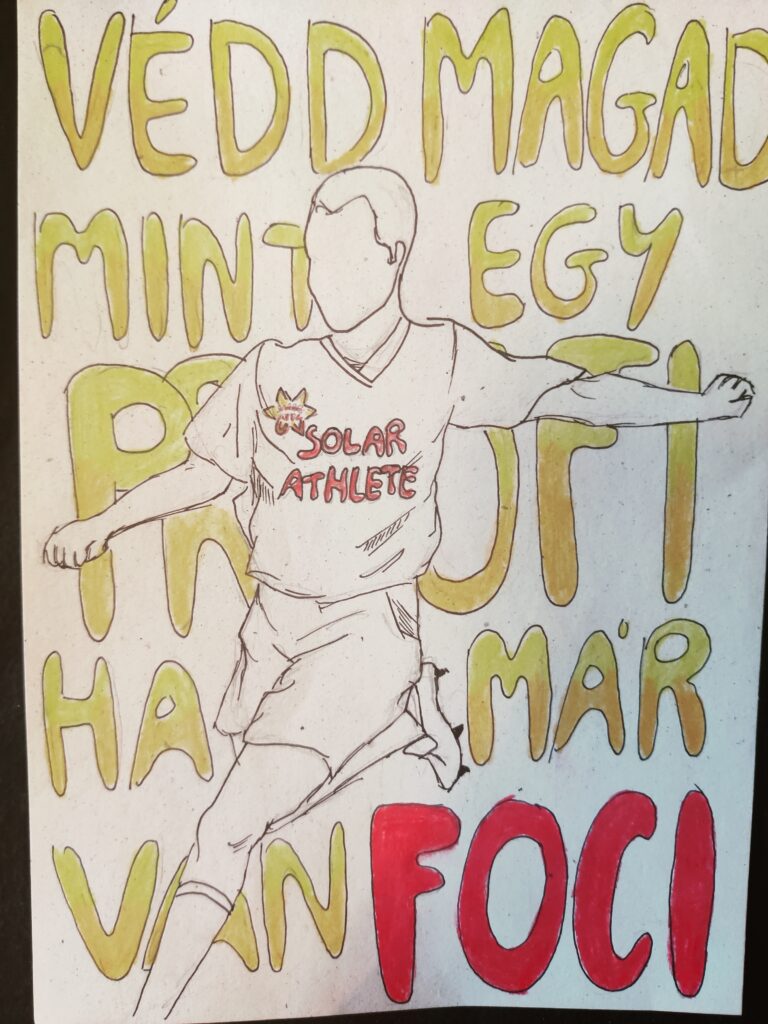 VÉDD MAGAD
MINT EGY
PROFI
SOLAR
ATHLETE
HA MÁR
VAN FOCI